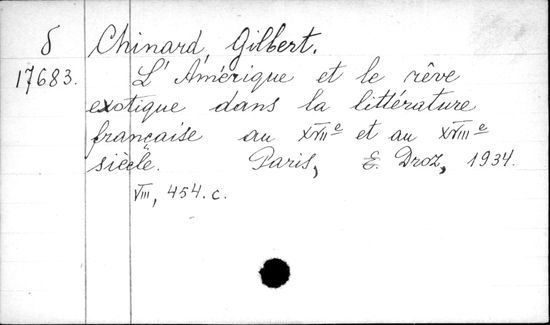 δ Chinard, Gilbert.
17683. L'Amérique et le rêve
exotique dans la littérature
française au XVIIe et au XVIIIe
siècle. Paris, E. Droz, 1934.
VIII, 454. c.